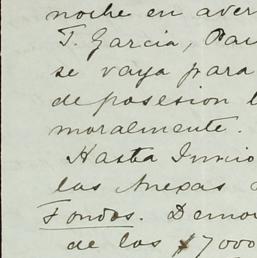 noche en aver
T. Garcia, Pau
se vaya para
de posesion l
moralmente.
Hasta Junio
las Anexas
Fondos. Demo
de los $7000